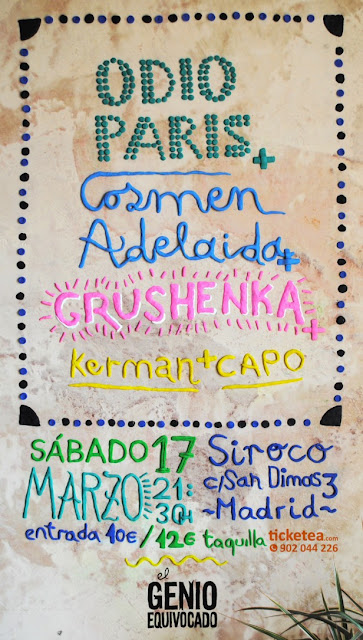 ODIO
PARIS +
Cosmen
Adelaida +
GRUSHENKA +
Kerman + CAPO
SÁBADO 17 Siroco
MARZO 21: c/San Dimas 3
30H ~Madrid~
entrada 10€/12€ taquilla ticketea.com
902 044 226
el
GENIO
EQUIVOCADO